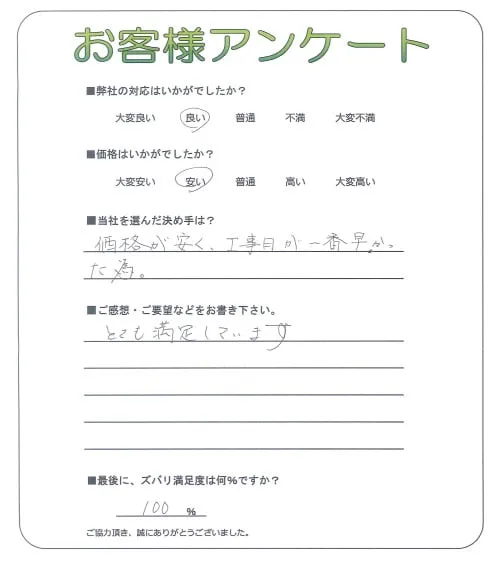 お客様アンケート
■弊社の対応はいかがでしたか？
大変良い 良い 普通 不満 大変不満
■価格はいかがでしたか？
大変安い 安い 普通 高い 大変高い
■当社を選んだ決め手は？
価格が安く、工事日が一番早かっ
た為。
■ご感想・ご要望などをお書き下さい。
とても満足しています
■最後に、ズバリ満足度は何％ですか？
100 ％
ご協力頂き、誠にありがとうございました。